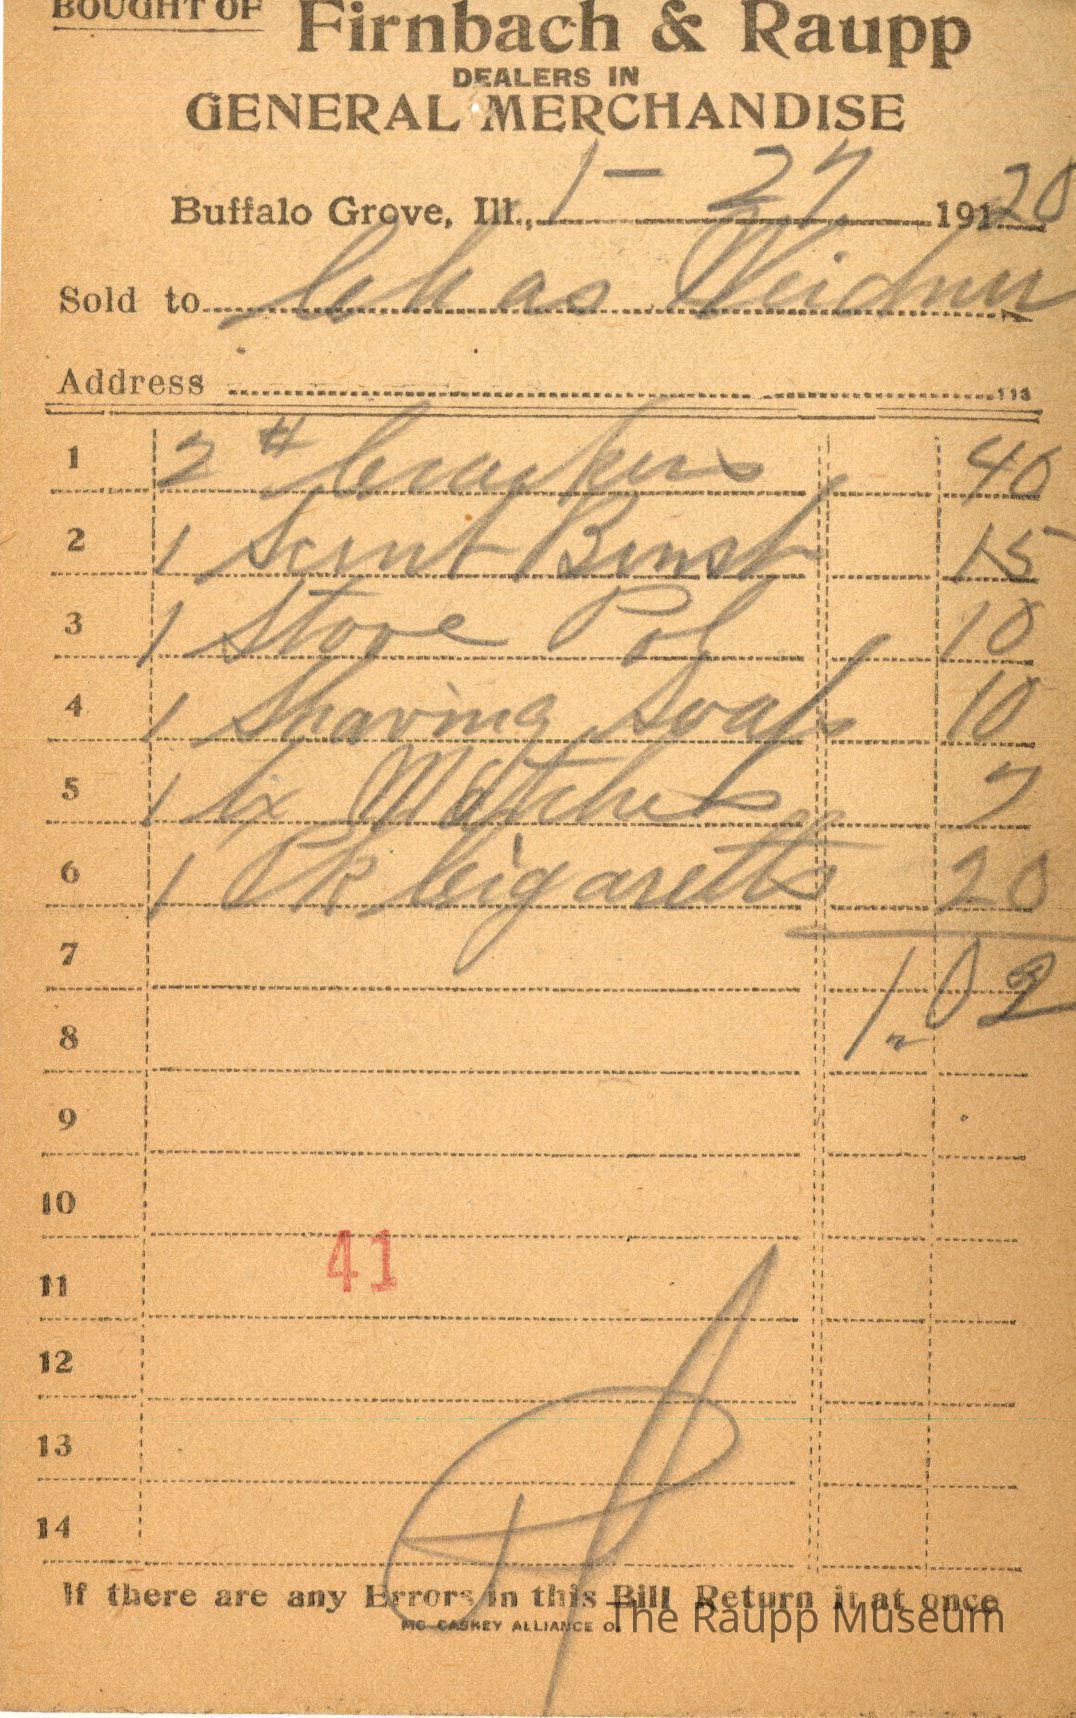 BOUGHT OF
Firnbach & Raupp
DEALERS IN
GENERAL MERCHANDISE
Buffalo Grove, Ill., 1 - 27 191 20
Sold to Chas Weidner
Address
113
1 2 # Crackers 40
2 1 15
3 1 Stove Pol 10
4 1 Shaving Soap 10
5 1 bx Matches 7
6 1 Pk Cigaretts 20
7 1.02
8
9
10
41
11
12
13
14
If there are any Errors in this Bill Return it at once
MC CASKEY ALLIANCE O.
The Raupp Museum